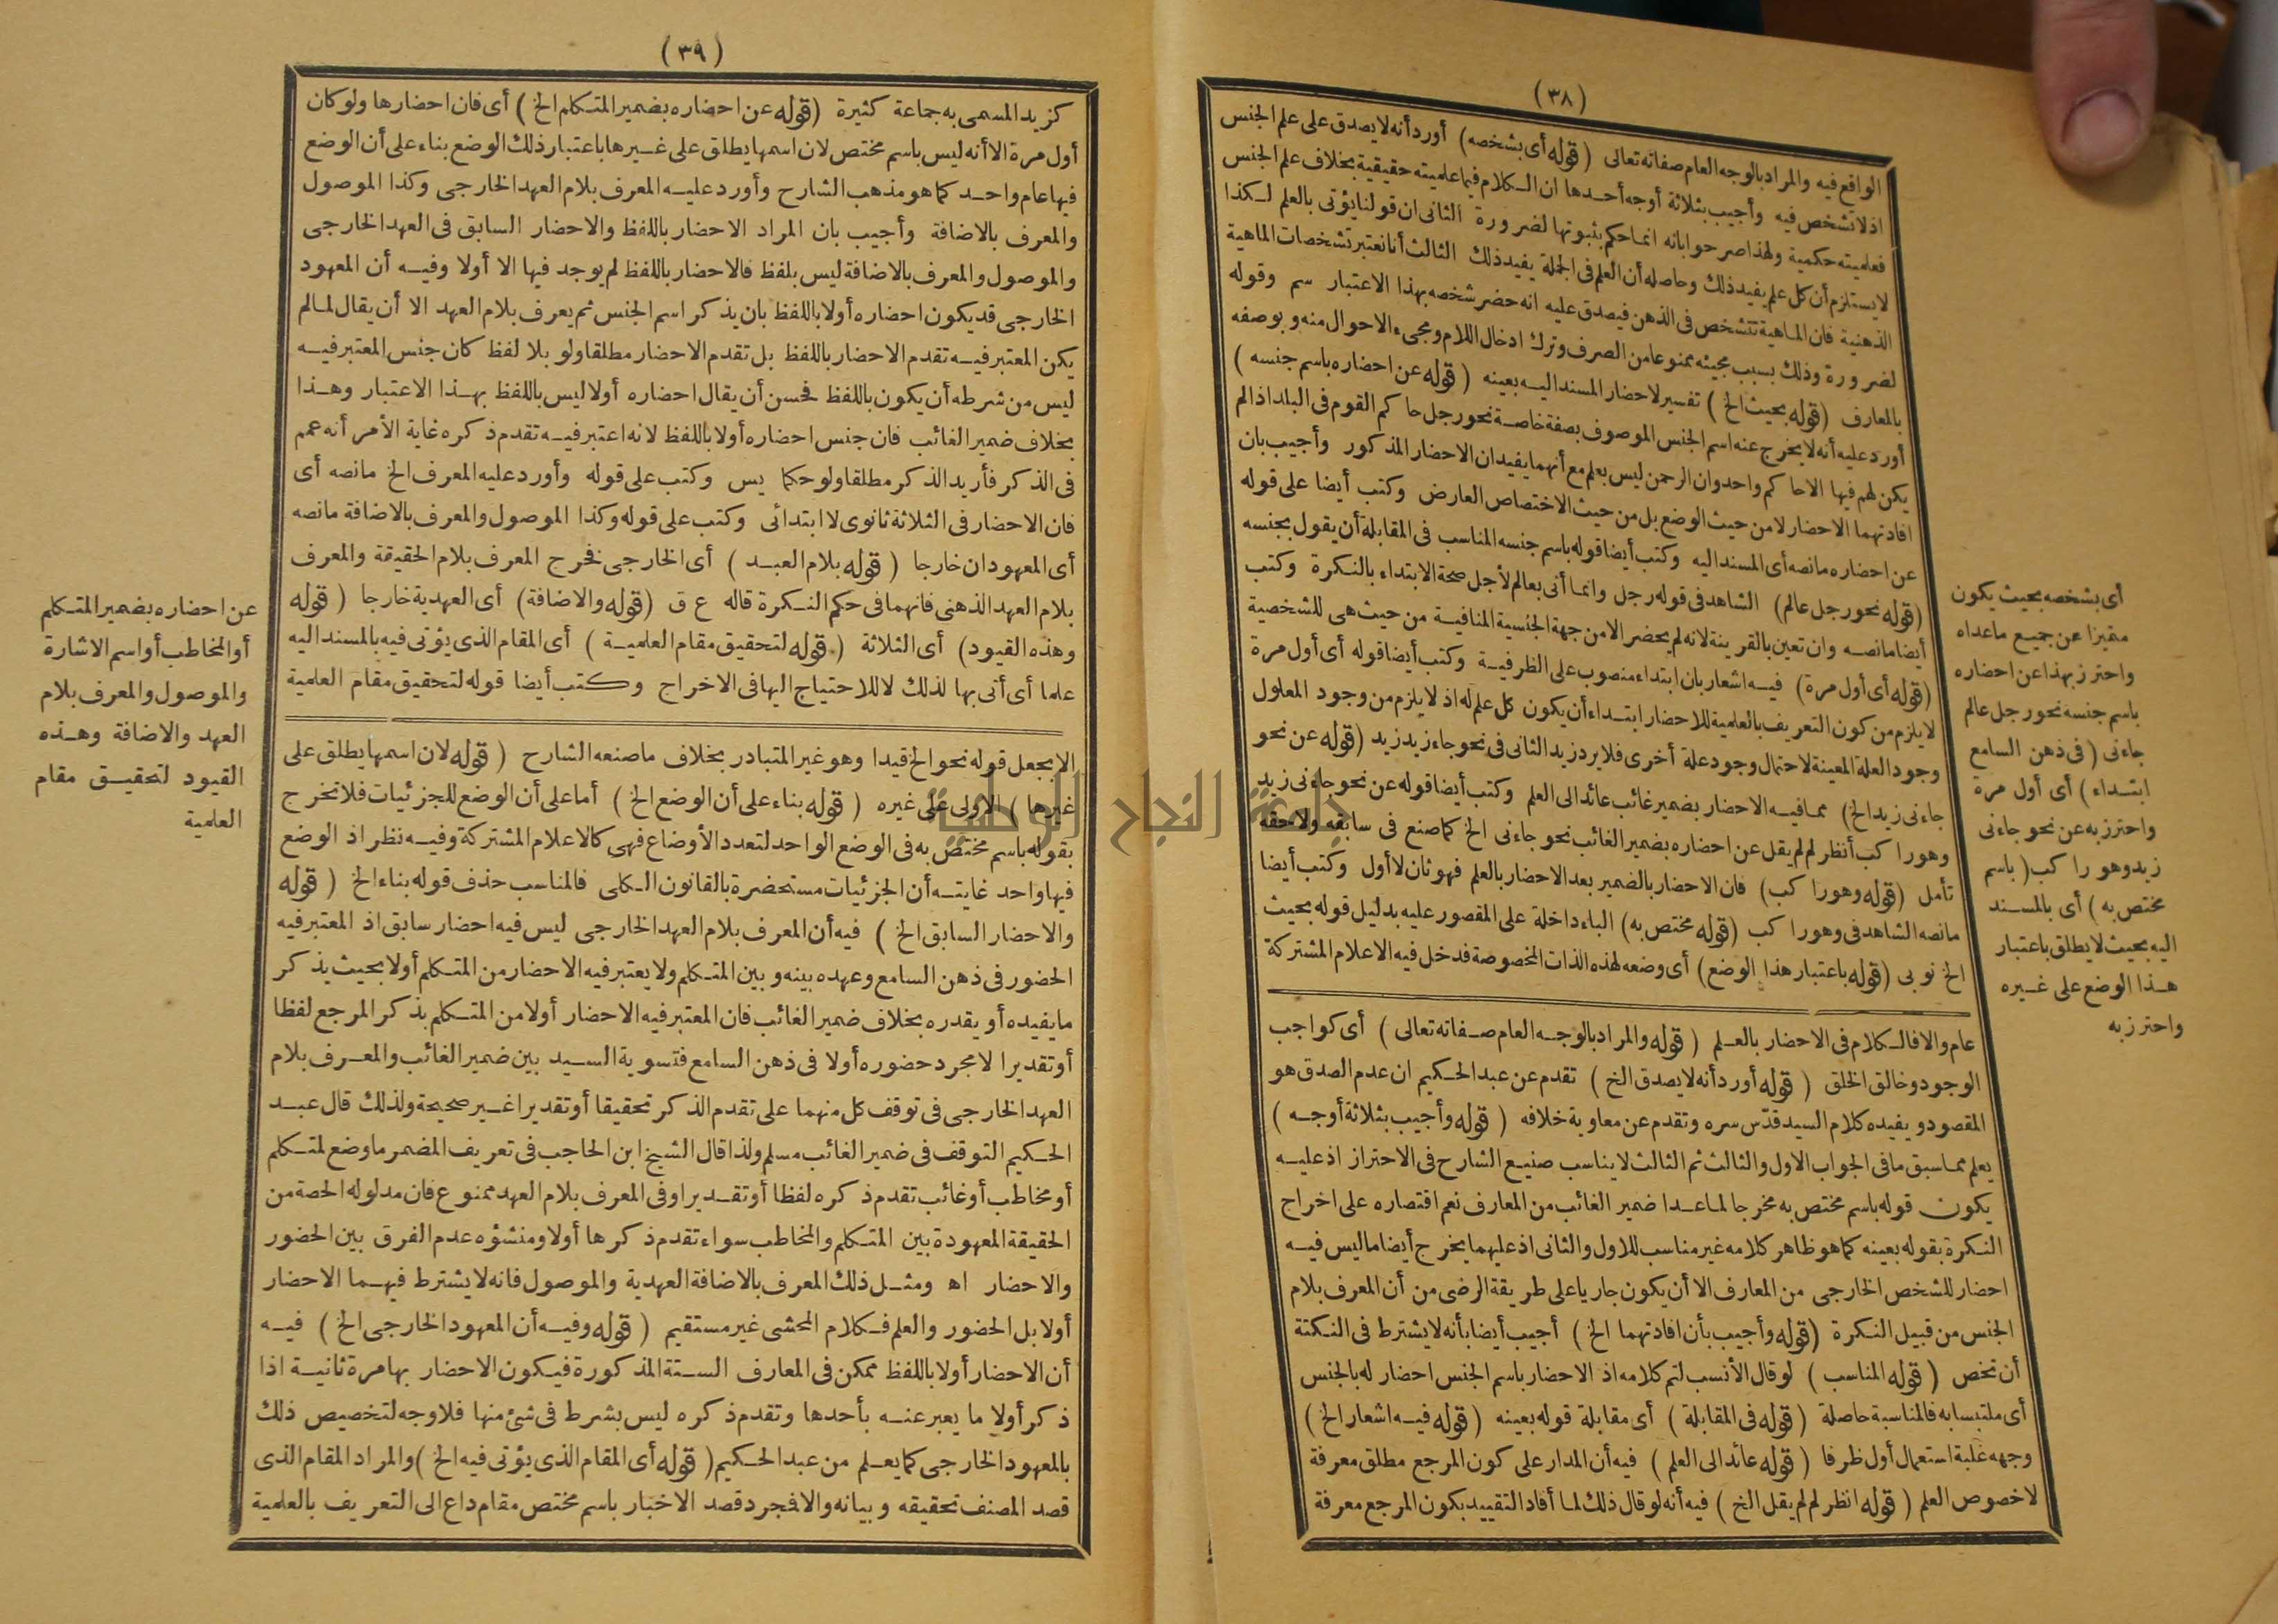 (٣٨)
الواقع فيه والمراد بالوجه العام صفاته تعالى (قوله أى بشخصه) أورد أنه لا يصدق على علم الجنس
اذ لا تشخص فيه وأجيب بثلاثة أوجه أحدها ان الكلام فيما علميته حقيقية بخلاف علم الجنس
فعلميته حكمية ولهذا صرحوا بانه انما حكم بثبوتها لضرورة الثانى ان قولنا يؤتى بالعلم لكذا
لا يستلزم أن كل علم يفيد ذلك وحاصله أن العلم فى الجملة يفيد ذلك الثالث أنا نعتبر تشخصات الماهية
الذهنية فان الماهية تتشخص فى الذهن فيصدق عليه انه حضر شخصه بهذا الاعتبار سم وقوله
لضرورة وذلك بسبب مجيئه ممنوعا من الصرف وترك ادخال اللام ومجىء الاحوال منه وبوصفه
بالمعارف (قوله بحيث الخ) تفسير لاحضار المسند اليه بعينه (قوله عن احضاره باسم جنسه)
أورد عليه أنه لا يخرج عنه اسم الجنس الموصوف بصفة خاصة نحو رجل حاكم القوم فى البلد اذا لم
يكن لهم فيها الا حاكم واحد وان الرحمن ليس بعلم مع أنهما يفيدان الاحضار المذكور وأجيب بان
افادتهما الاحضار لا من حيث الوضع بل من حيث الاختصاص العارض وكتب أيضا على قوله
عن احضاره مانصه أى المسند اليه وكتب أيضا قوله باسم جنسه المناسب فى المقابلة أن يقول بجنسه
(قوله نحو رجل عالم) الشاهد فى قوله رجل وانما أتى بعالم لأجل صحة الابتداء بالنكرة وكتب
أيضا مانصه وان تعين بالقرينة لانه لم يحضر الا من جهة الجنسية المنافية من حيث هى للشخصية
(قوله أى أول مرة) فيه اشعار بان ابتداء منصوب على الظرفية وكتب أيضا قوله أى أول مرة
لا يلزم من كون التعريف بالعلمية للاحضار ابتداء أن يكون كل علم له اذ لا يلزم من وجود المعلول
وجود العلة المعينة لاحتمال وجود علة أخرى فلا يرد زيد الثانى فى نحو جاء زيد زيد (قوله عن نحو
جاءنى زيد الخ) مما فيه الاحضار بضمير غائب عائد الى العلم وكتب أيضا قوله عن نحو جاءنى زيد
وهو راكب أنظر لم لم يقل عن احضاره بضمير الغائب نحو جاءنى الخ كما صنع فى سابقه ولاحقه
تأمل (قوله وهو راكب) فان الاحضار بالضمير بعد الاحضار بالعلم فهو ثان لا أول وكتب أيضا
مانصه الشاهد فى وهو راكب (قوله مختص به) الباء داخلة على المقصور عليه بدليل قوله بحيث
الخ نوبى (قوله باعتبار هذا الوضع) أى وضعه لهذه الذات المخصوصة فدخل فيه الاعلام المشتركة
عام والا فالكلام فى الاحضار بالعلم (قوله والمراد بالوجه العام صفاته تعالى) أى كواجب
الوجود وخالق الخلق (قوله أورد أنه لا يصدق الخ) تقدم عن عبد الحكيم ان عدم الصدق هو
المقصود ويفيده كلام السيد قدّس سره وتقدم عن معاوية خلافه (قوله وأجيب بثلاثة أوجه)
يعلم مما سبق ما فى الجواب الاول والثالث ثم الثالث لا يناسب صنيع الشارح فى الاحتراز اذ عليه
يكون قوله باسم مختص به مخرجا لما عدا ضمير الغائب من المعارف نعم اقتصاره على اخراج
النكرة بقوله بعينه كما هو ظاهر كلامه غير مناسب للاول والثانى اذ عليهما يخرج أيضا ما ليس فيه
احضار للشخص الخارجى من المعارف الا أن يكون جاريا على طريقة الرضى من أن المعرف بلام
الجنس من قبيل النكرة (قوله وأجيب بأن افادتهما الخ) أجيب أيضا بأنه لا يشترط فى النكتة
أن تخص (قوله المناسب) لو قال الأنسب لتم كلامه اذ الاحضار باسم الجنس احضار له بالجنس
أى ملتبسا به فالمناسبة حاصلة (قوله فى المقابلة) أى مقابلة قوله بعينه (قوله فيه اشعار الخ)
وجهه غلبة استعمال أول ظرفا (قوله عائد الى العلم) فيه أن المدار على كون المرجع مطلق معرفة
لا خصوص العلم (قوله انظر لم لم يقل الخ) فيه أنه لو قال ذلك لما أفاد التقييد بكون المرجع معرفة
أى بشخصه بحيث يكون
متميزا عن جميع ماعداه
واحترز بهذا عن احضاره
باسم جنسه نحو رجل عالم
جاءنى (فى ذهن السامع
ابتداء) أى أول مرة
واحترز به عن نحو جاءنى
زيد وهو راكب (باسم
مختص به) أى بالمسند
اليه بحيث لا يطلق باعتبار
هذا الوضع على غيره
واحترز به
(٣٩)
كزيد المسمى به جماعة كثيرة (قوله عن احضاره بضمير المتكلم الخ) أى فان احضارها ولو كان
أول مرة الا أنه ليس باسم مختص لان اسمها يطلق على غيرها باعتبار ذلك الوضع بناء على أن الوضع
فيها عام واحد كما هو مذهب الشارح وأورد عليه المعرف بلام العهد الخارجى وكذا الموصول
والمعرف بالاضافة وأجيب بان المراد الاحضار باللفظ والاحضار السابق فى العهد الخارجى
والموصول والمعرف بالاضافة ليس بلفظ فالاحضار باللفظ لم يوجد فيها الا أولا وفيه أن المعهود
الخارجى قد يكون احضاره أولا باللفظ بان يذكر اسم الجنس ثم يعرف بلام العهد الا أن يقال لمالم
يكن المعتبر فيه تقدم الاحضار باللفظ بل تقدم الاحضار مطلقا ولو بلا لفظ كان جنس المعتبر فيه
ليس من شرطه أن يكون باللفظ فحسن أن يقال احضاره أولا ليس باللفظ بهذا الاعتبار وهذا
بخلاف ضمير الغائب فان جنس احضاره أولا باللفظ لانه اعتبر فيه تقدم ذكره غاية الأمر أنه عمم
فى الذكر فأريد الذكر مطلقا ولو حكما يس وكتب على قوله وأورد عليه المعرف الخ مانصه أى
فان الاحضار فى الثلاثة ثانوى لا ابتدائى وكتب على قوله وكذا الموصول والمعرف بالاضافة مانصه
أى المعهودان خارجا (قوله بلام العهد) أى الخارجى فخرج المعرف بلام الحقيقة والمعرف
بلام العهد الذهنى فانهما فى حكم النكرة قاله ع ق (قوله والاضافة) أى العهدية خارجا (قوله
وهذه القيود) أى الثلاثة (قوله لتحقيق مقام العلمية) أى المقام الذى يؤتى فيه بالمسند اليه
علما أى أتى بها لذلك لا للاحتياج اليها فى الاخراج وكتب أيضا قوله لتحقيق مقام العلمية
الا بجعل قوله نحو الخ قيدا وهو غير المتبادر بخلاف ماصنعه الشارح (قوله لان اسمها يطلق على
غيرها) الاولى على غيره (قوله بناء على أن الوضع الخ) أما على أن الوضع للجزئيات فلا تخرج
بقوله باسم مختص به فى الوضع الواحد لتعدد الأوضاع فهى كالاعلام المشتركة وفيه نظر اذ الوضع
فيها واحد غايته أن الجزئيات مستحضرة بالقانون الكلى فالمناسب حذف قوله بناء الخ (قوله
والاحضار السابق الخ) فيه أن المعرف بلام العهد الخارجى ليس فيه احضار سابق اذ المعتبر فيه
الحضور فى ذهن السامع وعهده بينه وبين المتكلم ولا يعتبر فيه الاحضار من المتكلم أولا بحيث يذكر
ما يفيده أو يقدره بخلاف ضمير الغائب فان المعتبر فيه الاحضار أولا من المتكلم بذكر المرجع لفظا
أو تقديرا لا مجرد حضوره أولا فى ذهن السامع فتسوية السيد بين ضمير الغائب والمعرف بلام
العهد الخارجى فى توقف كل منهما على تقدم الذكر تحقيقا أو تقديرا غير صحيحة ولذلك قال عبد
الحكيم التوقف فى ضمير الغائب مسلم ولذا قال الشيخ ابن الحاجب فى تعريف المضمر ما وضع لمتكلم
أو مخاطب أو غائب تقدم ذكره لفظا أو تقديرا وفى المعرف بلام العهد ممنوع فان مدلوله الحصة من
الحقيقة المعهودة بين المتكلم والمخاطب سواء تقدم ذكرها أولا ومنشؤه عدم الفرق بين الحضور
والاحضار اه ومثل ذلك المعرف بالاضافة العهدية والموصول فانه لا يشترط فيهما الاحضار
أولا بل الحضور والعلم فكلام المحشى غير مستقيم (قوله وفيه أن المعهود الخارجى الخ) فيه
أن الاحضار أولا باللفظ ممكن فى المعارف الستة المذكورة فيكون الاحضار بها مرة ثانية اذا
ذكر أولا ما يعبر عنه بأحدها وتقدم ذكره ليس بشرط فى شئ منها فلا وجه لتخصيص ذلك
بالمعهود الخارجى كما يعلم من عبد الحكيم (قوله أى المقام الذى يؤتى فيه الخ) والمراد المقام الذى
قصد المصنف تحقيقه وبيانه والا فمجرد قصد الاخبار باسم مختص مقام داع الى التعريف بالعلمية
عن احضاره بضمير المتكلم
أو المخاطب أو اسم الاشارة
والموصول والمعرف بلام
العهد والاضافة وهذه
القيود لتحقيق مقام
العلمية
جامعة النجاح الوطنية